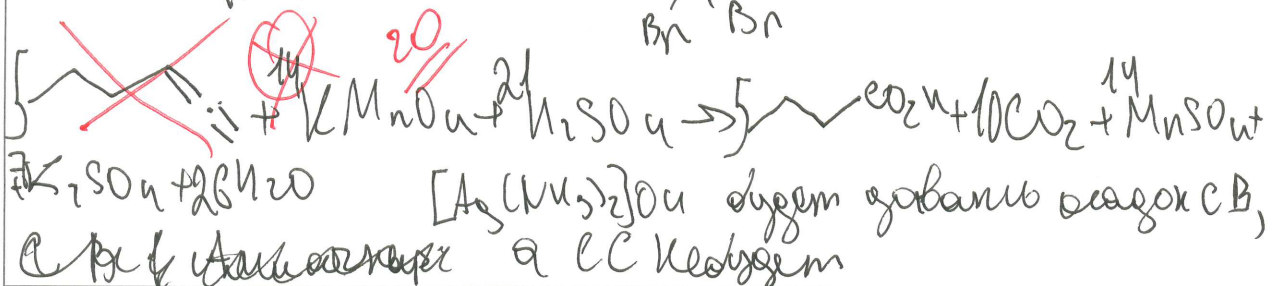 Br Br
20
5 + 14KMnO4 + 21H2SO4 → 5 CO2H + 10CO2 + 14MnSO4 +
7K2SO4 + 26H2O [Ag(NH3)2]OH будет давать осадок с B,
а с C не будет